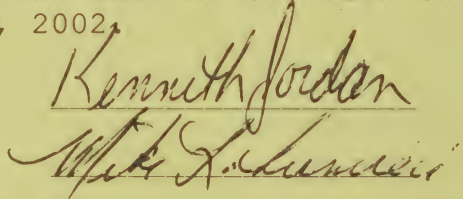 2002.
Kenneth Jordan
Mike